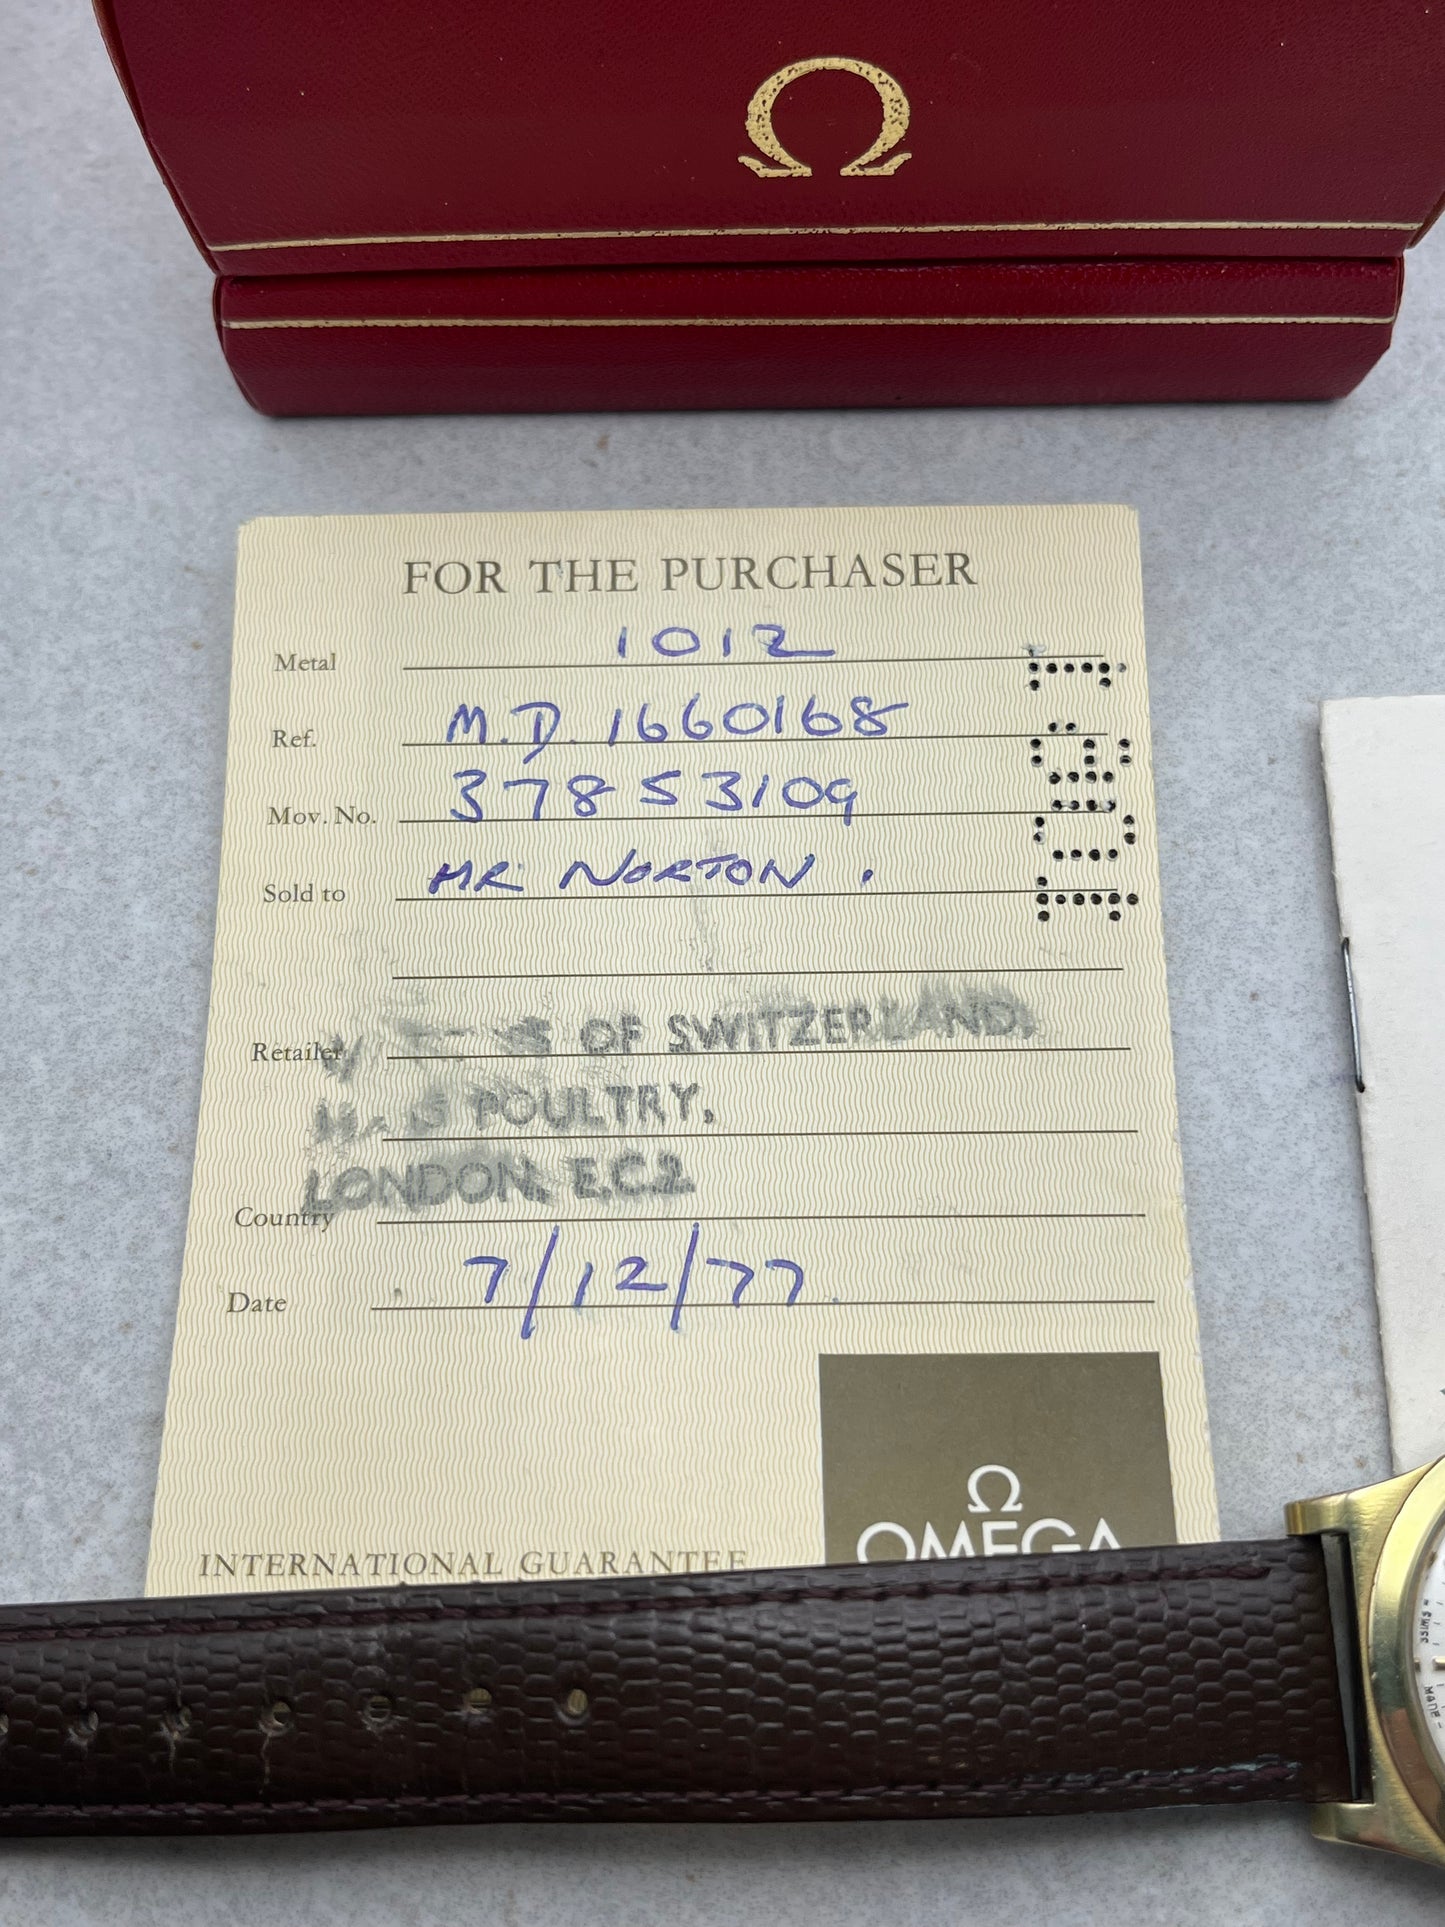 FOR THE PURCHASER
Metal 1012
Ref. M.D. 1660168
Mov. No. 37853109
Sold to MR NORTON.
Retailer OF SWITZERLAND,
POULTRY,
LONDON E.C.2
Country
Date 7/12/77.
INTERNATIONAL GUARANTEE
Ω
OMEGA
SWISS
MADE